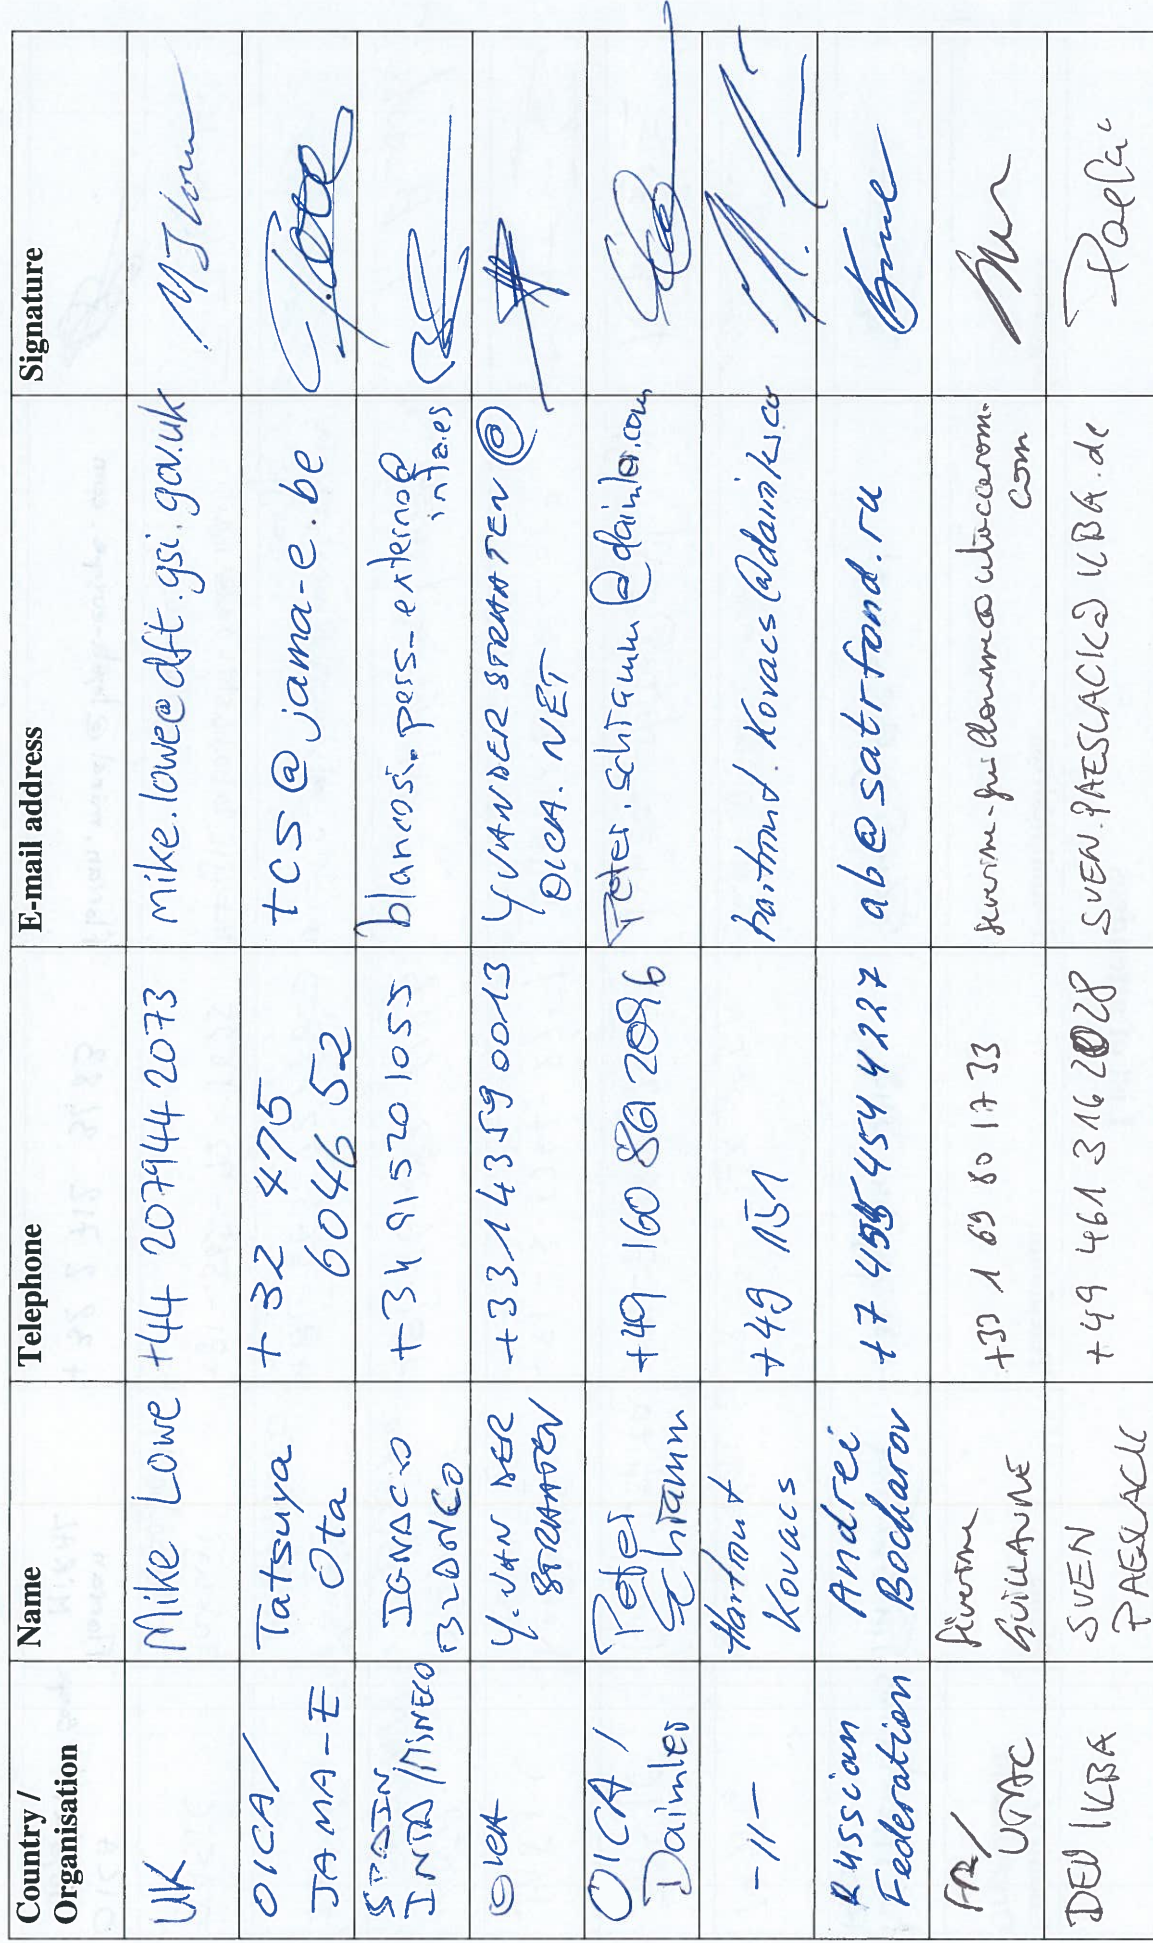 Country / Organisation
Name
Telephone
E-mail address
Signature
UK
Mike Lowe
+44 207944 2073
mike.lowe@dft.gsi.gov.uk
OICA/
JAMA-E
Tatsuya
Ota
+32 475
6046 52
tcs@jama-e.be
SPAIN
INTA/MINECO
IGNACIO
BLANCO
+34 91 520 1055
blancosi.pers_externo@
inta.es
OICA
Y. VAN DER
STRAATEN
+33 1 43590013
YVANDERSTRAATEN@
OICA.NET
OICA /
Daimler
Peter
Schramm
+49 160 861 2096
Peter.schramm@daimler.com
-11-
Hartmut
Kovacs
+49 151
hartmut.kovacs@daimler.co
Russian
Federation
Andrei
Bocharov
+7 495 454 4227
ab@satrfond.ru
FR/
UTAC
Séverine
GUILLAUME
+33 1 69 80 17 33
severine.guillaume@utacceram.
com
DEU/KBA
SVEN
PAESLACK
+49 461 316 2028
SVEN.PAESLACK@KBA.de